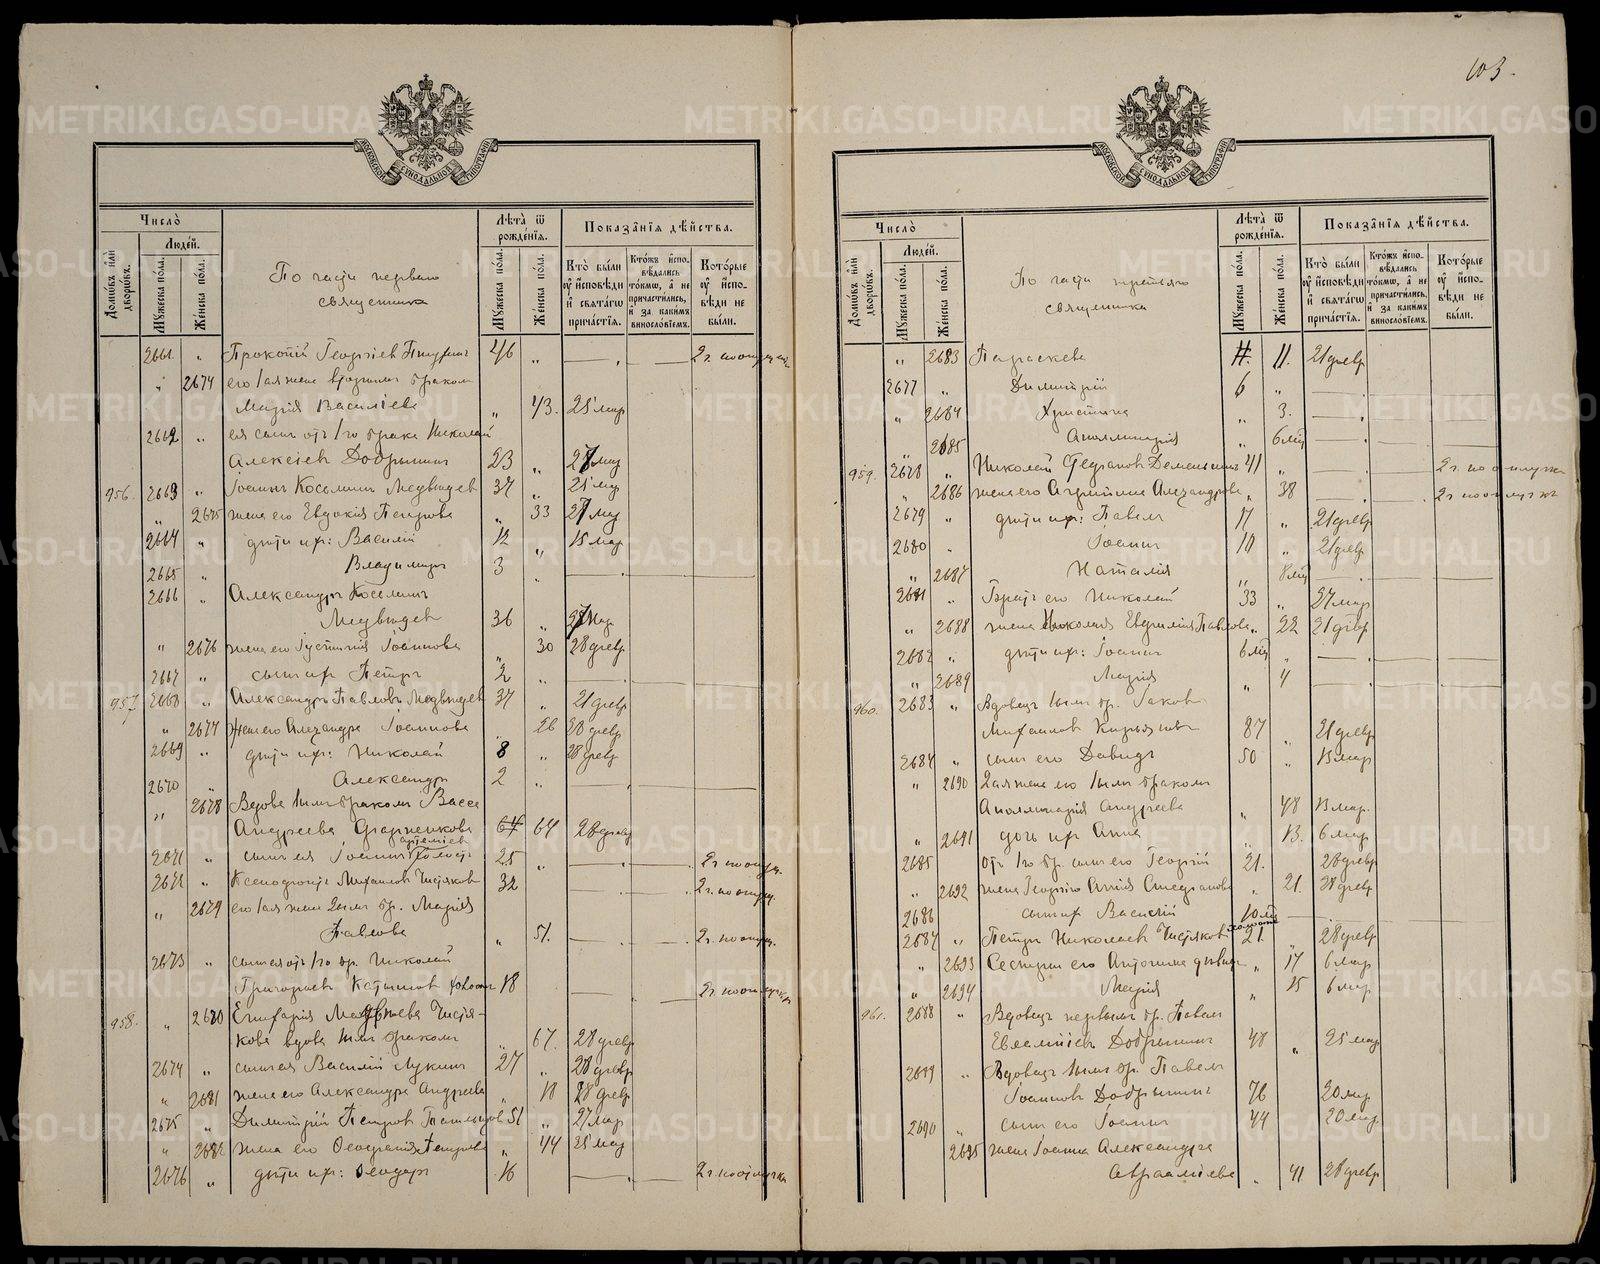 103.
МОСКОВСКОЙ СѴНОДАЛЬНОЙ ТИПОГРАФІИ
Число̀
Лѣта̀ ѿ рожде́нїѧ.
Показа̂нїѧ дѣ́йства.
Домѡ́въ и҆лѝ дворѡ́въ.
Люде́й.
Мꙋ́жеска по́ла.
Же́нска по́ла.
По части первого
священника
Мꙋ́жеска по́ла.
Же́нска по́ла.
Кто̀ бы́ли ᲂу҆ и҆сповѣ́ди и҆ свѧта́гѡ прича́стїѧ.
Кто́жъ и҆спо-вѣ́дались то́кмѡ, а҆ не причасти́лись, и҆ за каки́мъ винослові́емъ.
Кото́рые ᲂу҆ и҆спо-вѣ́ди не бы́ли.
2661. " Прокопій Георгіев 46 " 2 г. по отлуч.
" 2674 его 1ая жена вторым браком
Марія Васильева " 43. 25 мар
2662 " ея сын от 1го брака Николай
Алексіев Добрынин 23 " 27 мар
956. 2663 " Іоанн Косьмин Медведев 37 " 25 мар
" 2675 жена его Евдокия Петрова " 33 27 мар
2664 " дети их: Василій 12 " 15 мар
2665 " Владимир 3 "
2666 " Александр Косьмин
Медведев 36 " 27 мар
" 2676 жена его Іустинія Іоаннова " 30 28 февр
2667 " сын их Петр 2 "
957. 2668 " Александр Павлов Медведев 37 " 21 февр
" 2677 Жена его Александра Іоаннова " 26 28 февр
2669 " дети их: Николай 8 " 28 февр
2670 " Александр 2 "
" 2678 Вдова 1ым браком Васса
Андреева 64 64 28 февр
2671 " сын ея Іоанн холост 25 " 2 г. по отлуч.
2672 " Ксенофонт Михаилов Чистяков 32 2 г. по отлуч.
" 2679 его 1ая жена 2ым бр. Марія
Павлова " 51. 2 г. по отлуч.
2673 " сын ея от 1го бр. Николай
Григорьев холост 18 2 г. по отлучке
958. " 2680 Епифарія Матфіева Чистя-
кова вдова 1ым браком " 67. 28 февр
2674 " сын ея Василій Лукин 27 " 28 февр
" 2681 жена его Александра Андреева " 18 28 февр
2675 " Димитрій Петров 51 " 27 мар
" 2682 жена его Петрова " 44 25 мар
2676 " дети их: Феодор 16 2 г. по отлучке
МОСКОВСКОЙ СѴНОДАЛЬНОЙ ТИПОГРАФІИ
Число̀
Лѣта̀ ѿ рожде́нїѧ.
Показа̂нїѧ дѣ́йства.
Домѡ́въ и҆лѝ дворѡ́въ.
Люде́й.
Мꙋ́жеска по́ла.
Же́нска по́ла.
По части третьяго
священника
Мꙋ́жеска по́ла.
Же́нска по́ла.
Кто̀ бы́ли ᲂу҆ и҆сповѣ́ди и҆ свѧта́гѡ прича́стїѧ.
Кто́жъ и҆спо-вѣ́дались то́кмѡ, а҆ не причасти́лись, и҆ за каки́мъ винослові́емъ.
Кото́рые ᲂу҆ и҆спо-вѣ́ди не бы́ли.
" 2683 Параскева 11. 21 февр
2677 " Димитрій 6 "
" 2684 Христина " 3.
" 2685 Аполлинарія " 6 мц
959. 2678 " Николай Стефанов Дементьев 41 " 2 г. по отлучке
" 2686 жена его Агрипина Александрова " 38 2 г. по отлучке
2679 " дети их: Павел 17 " 21 февр
2680 " Іоанн 10 " 21 февр
" 2687 Наталія " 8 мц
2681 " Брат его Николай 33 " 27 мар
" 2688 жена Николая Евфимія Павлова " 22 21 февр
2682 " дети их: Іоанн 6 мц "
" 2689 Марія " 4
960. 2683 " Вдовец 1ым бр. Іаков
Михаилов 87 " 21 февр
2684 " сын его Давид 50 " 13 мар
" 2690 2ая жена его 1ым браком
Аполлинарія Андреева " 48 13 мар.
" 2691 дочь их Анна " 13. 6 мар
2685 от 1го бр. сын его Георгій 21. 28 февр
" 2692 жена Георгія Анна Стефанова " 21. 28 февр
2686 сын их Василій 10 мц
2687 " Петр Николаев Чистяков холост 21. " 28 февр
" 2693 Сестры его Антонина девица " 17 6 мар
" 2694 Марія " 15 6 мар
961. 2688 " Вдовец первым бр. Павел
Евлампіев Добрынин 48 " 25 мар
2689 " Вдовец 1ым бр. Павел
Іоаннов Добрынин 76 20 мар
2690 " сын его Іоанн 44 20 мар
2695 жена Іоанна Александра
Авраамиева " 41 28 февр
METRIKI.GASO-URAL.RU